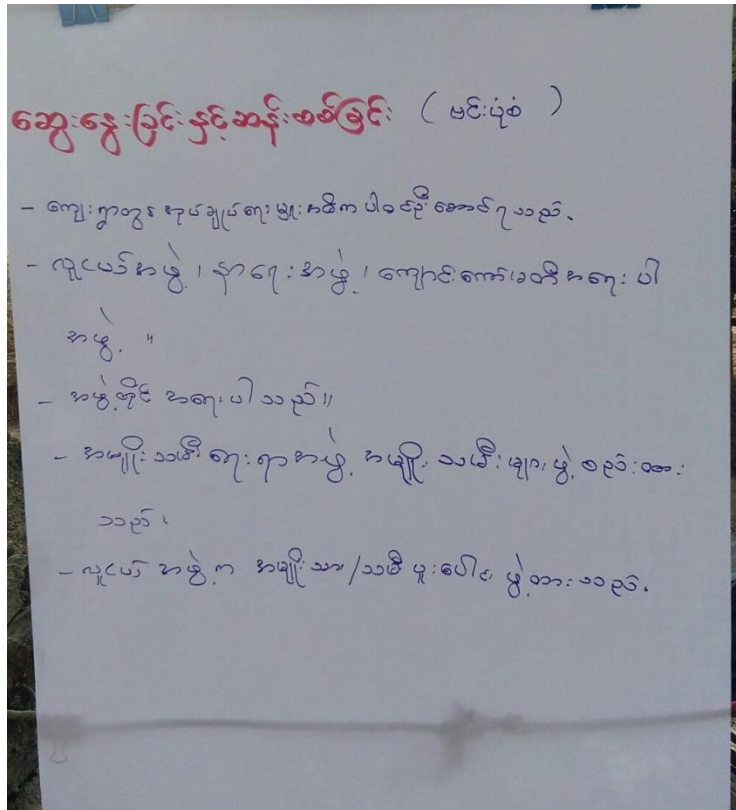 ဆွေးနွေးခြင်းနှင့်ဆန်းစစ်ခြင်း (ဗင်းပုံစံ)
- ကျေးရွာတွင် အုပ်ချုပ်ရေးမှူးအဓိက ပါဝင်ဦးဆောင်ရသည်.
- လူငယ်အဖွဲ့၊ နာရေးအဖွဲ့၊ ကျောင်းကော်မတီအရေးပါ
အဖွဲ့ ။
- အဖွဲ့တိုင် အရေးပါသည်။
- အမျိုးသမီးရေးရာအဖွဲ့ အမျိုးသမီးများဖွဲ့စည်းထား
သည်၊
- လူငယ်အဖွဲ့က အမျိုးသား/သမီ ပူးပေါင်း ဖွဲ့ထားသည်.